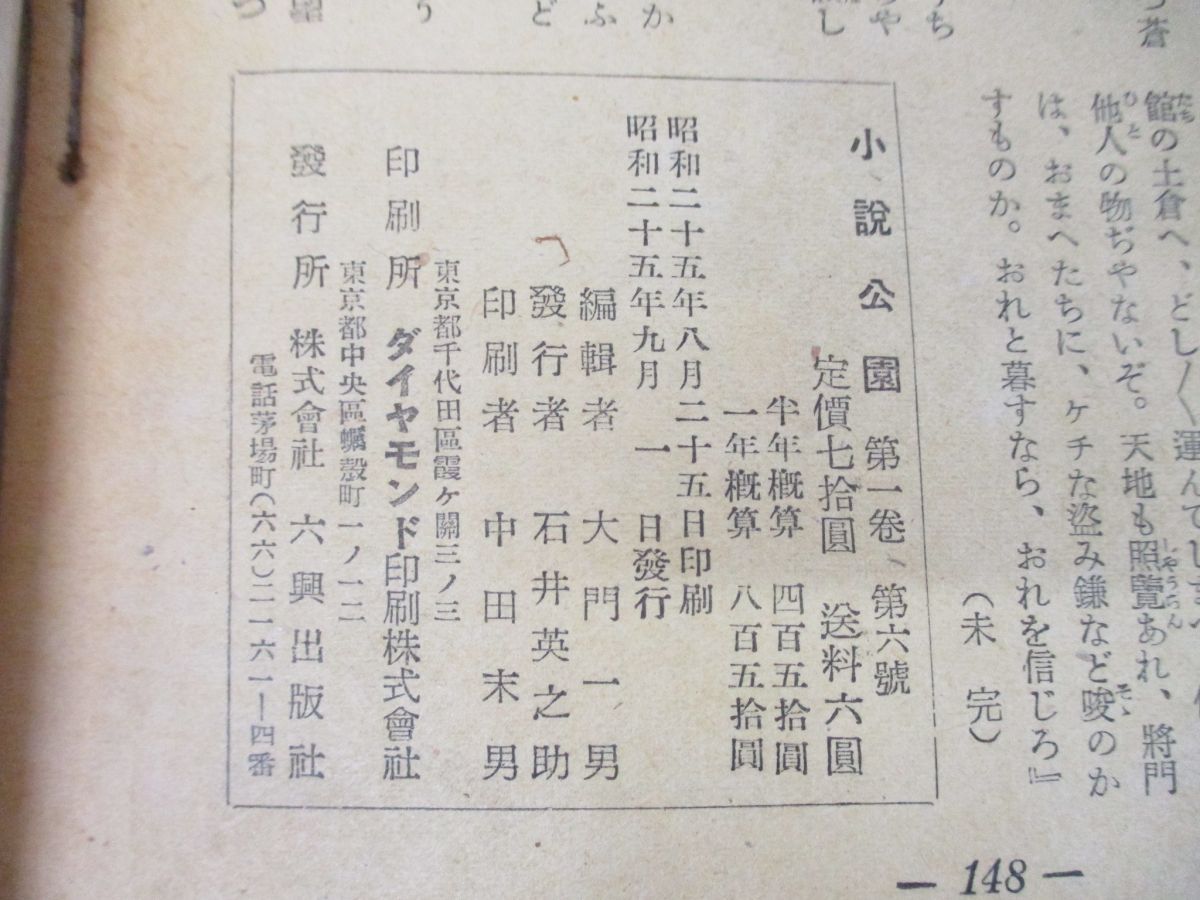 館の土倉へ、どし〳〵運んで
他人の物ぢやないぞ。天地も照覽あれ、將門
は、おまへたちに、ケチな盜み鎌など唆のか
すものか。おれと暮すなら、おれを信じろ』
（未完）
小說公園 第一卷、第六號
定價七拾圓 送料六圓
半年槪算 四百五拾圓
一年槪算 八百五拾圓
昭和二十五年八月二十五日印刷
昭和二十五年九月一日發行
編輯者 大門一男
發行者 石井英之助
印刷者 中田末男
東京都千代田區霞ケ關三ノ三
印刷所 ダイヤモンド印刷株式會社
東京都中央區蠣殼町一ノ一二
發行所 株式會社 六興出版社
電話茅場町（六六）二一六一―四番
— 148 —